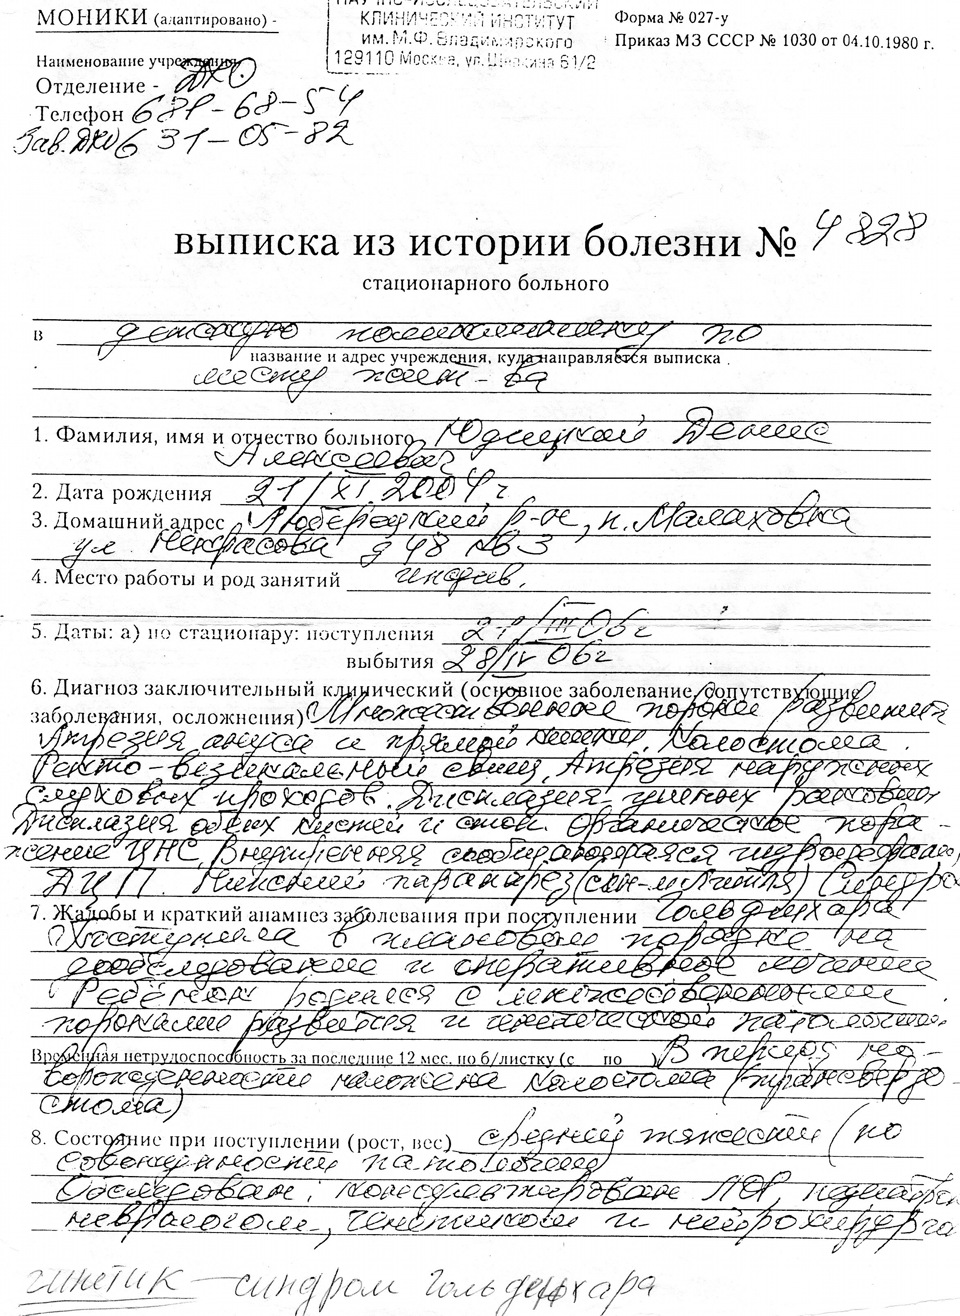 МОНИКИ (адаптировано) -
НАУЧНО-ИССЛЕДОВАТЕЛЬСКИЙ
КЛИНИЧЕСКИЙ ИНСТИТУТ
им. М.Ф. Владимирского
129110 Москва, ул. Щепкина 61/2
Форма № 027-у
Приказ МЗ СССР № 1030 от 04.10.1980 г.
Наименование учреждения
Отделение - ДХО
Телефон 681-68-54
Зав. ДХО 631-05-82
выписка из истории болезни № 4828
стационарного больного
в детскую поликлинику по
название и адрес учреждения, куда направляется выписка
месту жит-ва
1. Фамилия, имя и отчество больного Юдицкий Денис
Алексеевич
2. Дата рождения 21/XI 2004 г
3. Домашний адрес Люберецкий р-он, п. Малаховка
ул. Некрасова д 48 кв 3
4. Место работы и род занятий
5. Даты: а) по стационару: поступления 27/III 06г
выбытия 28/IV 06г
6. Диагноз заключительный клинический (основное заболевание, сопутствующие
заболевания, осложнения) Множественные пороки развития
Атрезия ануса и прямой кишки. Колостома.
Ректо-везикальный свищ. Атрезия наружных
слуховых проходов. Дисплазия ушных раковин
Дисплазия обеих кистей и стоп. Органическое пора-
жение ЦНС, внутренняя сообщающаяся гидроцефалия,
ДЦП. Нижний парапарез (син-м Литтля) Синдро
7. Жалобы и краткий анамнез заболевания при поступлении Гольденхара
Поступила в плановом порядке на
дообследование и оперативное лечение
Ребёнок родился с множественными
пороками развития и генетической патологией.
Временная нетрудоспособность за последние 12 мес. по б/листку (с по ) В период но-
ворожденности наложена колостома (трансверзо-
стома)
8. Состояние при поступлении (рост, вес) средней тяжести (по
совокупности патологии)
Обследован: консультирован ЛОР, педиатром
неврологом, генетиком и нейрохирурго
генетик - синдром Гольденхара